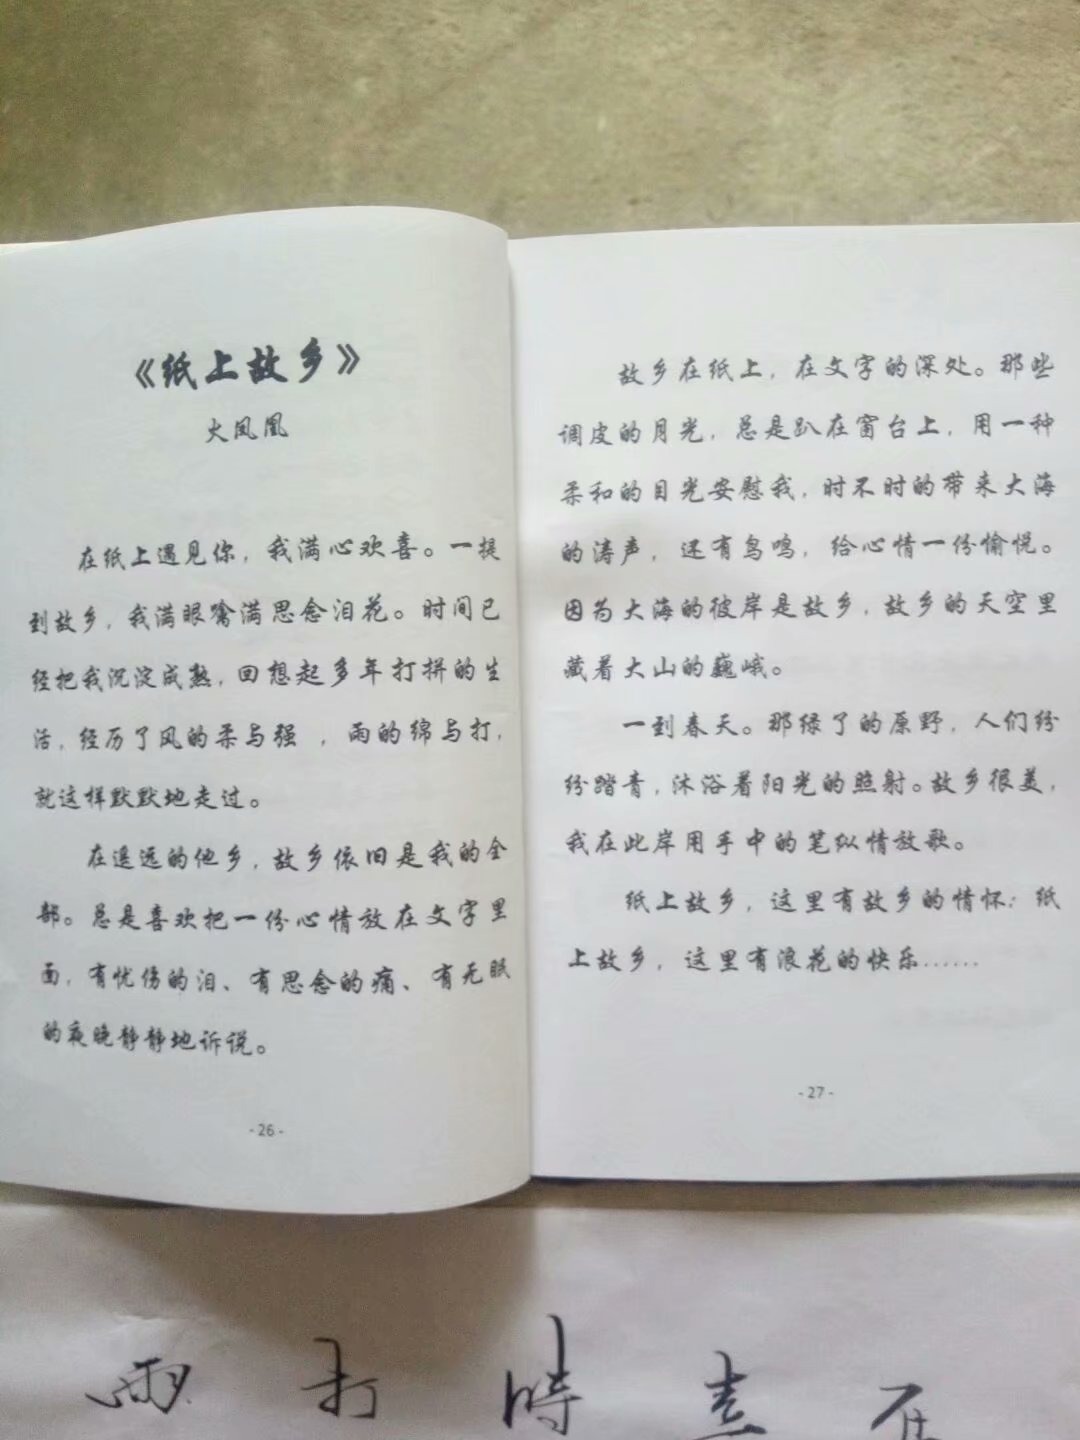 《纸上故乡》
火凤凰
在纸上遇见你，我满心欢喜。一提
到故乡，我满眼噙满思念泪花。时间已
经把我沉淀成熟，回想起多年打拼的生
活，经历了风的柔与强 ，雨的绵与打，
就这样默默地走过。
在遥远的他乡，故乡依旧是我的全
部。总是喜欢把一份心情放在文字里
面，有忧伤的泪、有思念的痛、有无眠
的夜晚静静地诉说。
- 26 -
故乡在纸上，在文字的深处。那些
调皮的月光，总是趴在窗台上，用一种
柔和的目光安慰我，时不时的带来大海
的涛声，还有鸟鸣，给心情一份愉悦。
因为大海的彼岸是故乡，故乡的天空里
藏着大山的巍峨。
一到春天。那绿了的原野，人们纷
纷踏青，沐浴着阳光的照射。故乡很美，
我在此岸用手中的笔纵情放歌。
纸上故乡，这里有故乡的情怀；纸
上故乡，这里有浪花的快乐……
- 27 -
雨打时